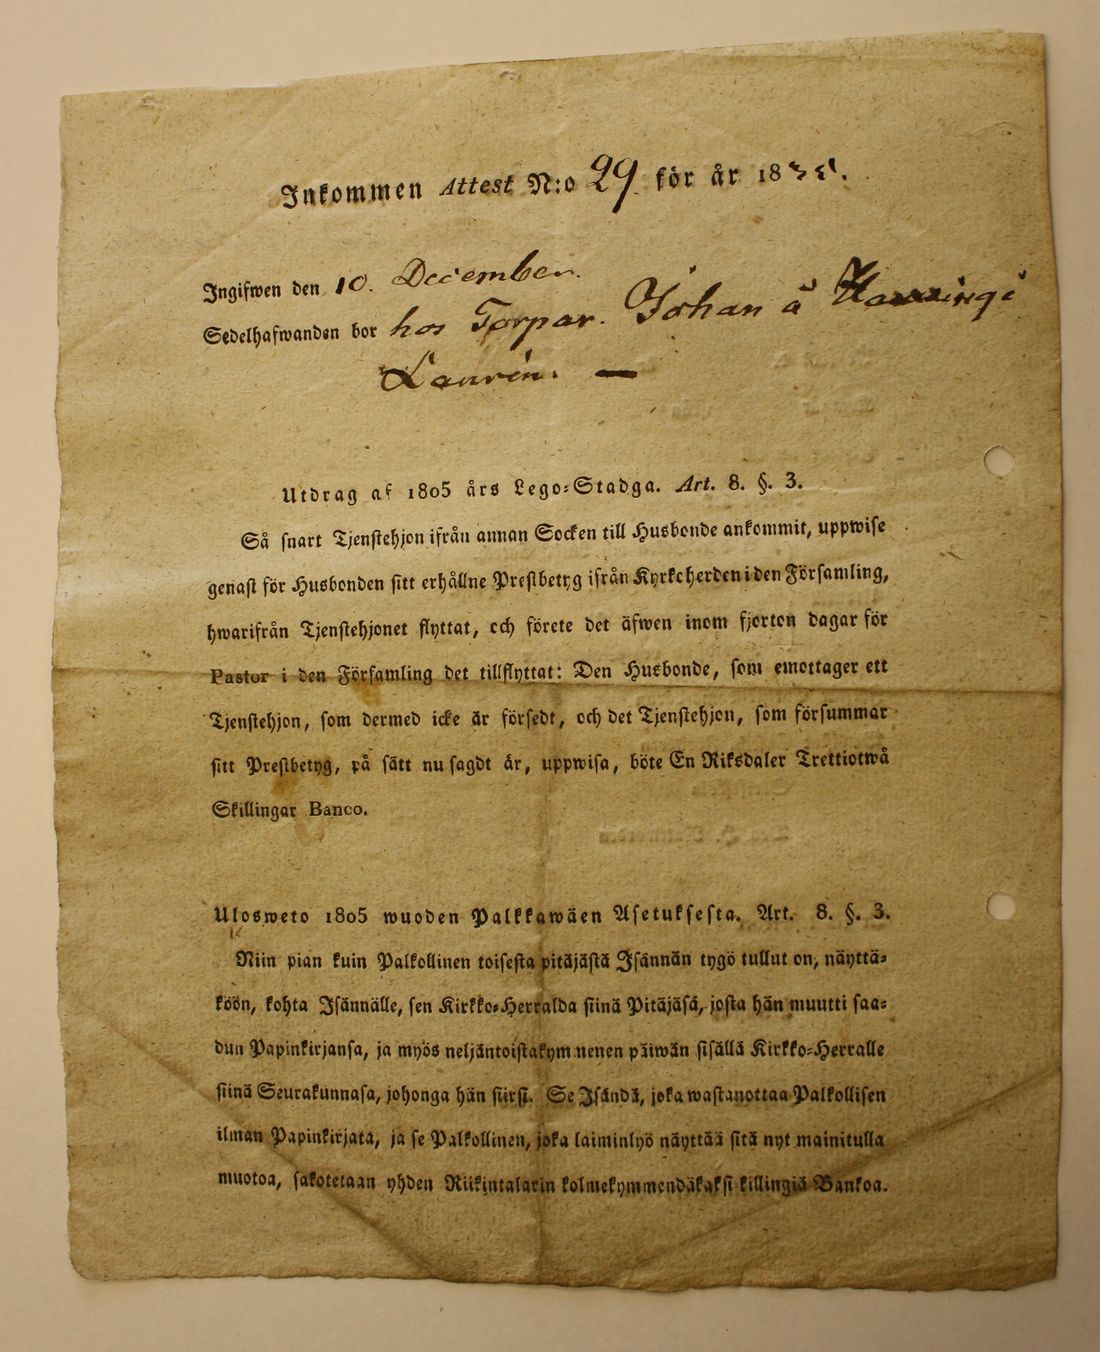 Inkommen Attest N:o 29 för år 18
Ingifwen den 10. December.
Sedelhafwanden bor hos Torpar. Johan å
Laurén. —
Utdrag af 1805 års Lego-Stadga. Art. 8. §. 3.
Så snart Tjenstehjon ifrån annan Socken till Husbonde ankommit, uppwise
genast för Husbonden sitt erhållne Prestbetyg ifrån Kyrkcherden i den Församling,
hwarifrån Tjenstehjonet flyttat, och förete det äfwen inom fjorton dagar för
Pastor i den Församling det tillflyttat: Den Husbonde, som emottager ett
Tjenstehjon, som dermed icke är försedt, och det Tjenstehjon, som försummar
sitt Prestbetyg, på sätt nu sagdt är, uppwisa, böte En Riksdaler Trettiotwå
Skillingar Banco.
Ulosweto 1805 wuoden Palkkawäen Asetuksesta. Art. 8. §. 3.
Niin pian kuin Palkollinen toisesta pitäjästä Isännän tygö tullut on, näyttä-
köön, kohta Isännälle, sen Kirkko-Herralda siinä Pitäjäsä, josta hän muutti saa-
dun Papinkirjansa, ja myös neljäntoistakymmenen päiwän sisällä Kirkko-Herralle
siinä Seurakunnasa, johonga hän siirsi. Se Isändä, joka wastanottaa Palkollisen
ilman Papinkirjata, ja se Palkollinen, joka laiminlyö näyttää sitä nyt mainitulla
muotoa, sakotetaan yhden Riikintalarin kolmekymmendäkaksi killingiä Bankoa.